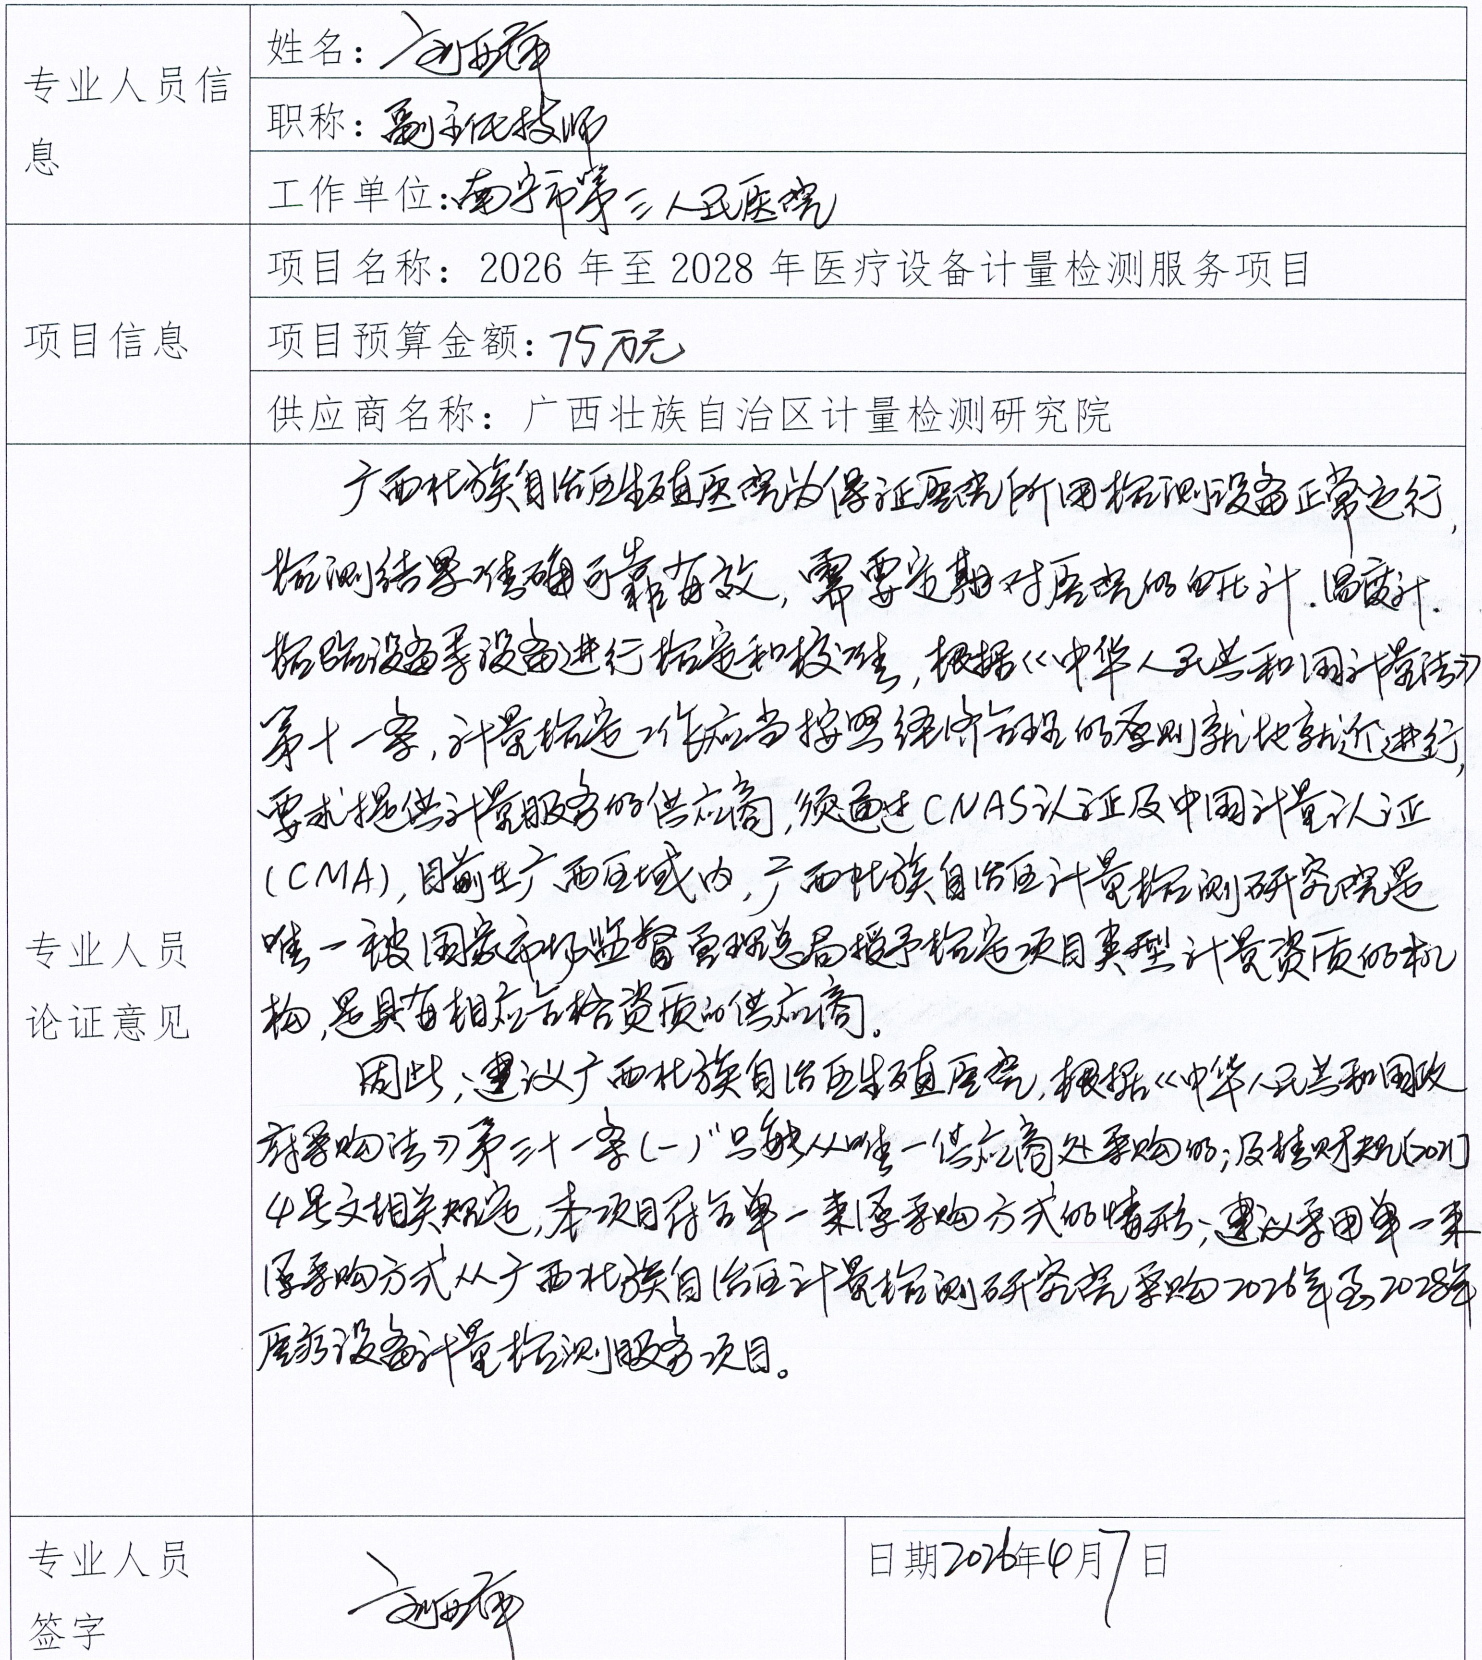 专业人员信息
姓名：
职称：副主任技师
工作单位：南宁市第三人民医院
项目信息
项目名称：2026年至2028年医疗设备计量检测服务项目
项目预算金额：75万元
供应商名称：广西壮族自治区计量检测研究院
专业人员
论证意见
广西壮族自治区生殖医院为保证医院所用检测设备正常运行，
检测结果准确可靠有效，需要定期对医院的血压计、温度计、
检验设备等设备进行检定和校准，根据《中华人民共和国计量法》
第十一条，计量检定工作应当按照经济合理的原则就地就近进行，
要求提供计量服务的供应商，须通过CNAS认证及中国计量认证
（CMA），目前在广西区域内，广西壮族自治区计量检测研究院是
唯一被国家市场监督管理总局授予检定项目类型计量资质的机
构，是具有相应合格资质的供应商。
因此，建议广西壮族自治区生殖医院，根据《中华人民共和国政
府采购法》第三十一条（一）“只能从唯一供应商处采购的；及桂财规[2021]
4号文相关规定，本项目符合单一来源采购方式的情形，建议采用单一来
源采购方式从广西壮族自治区计量检测研究院采购2026年至2028年
医疗设备计量检测服务项目。
专业人员
签字
日期2026年4月7日